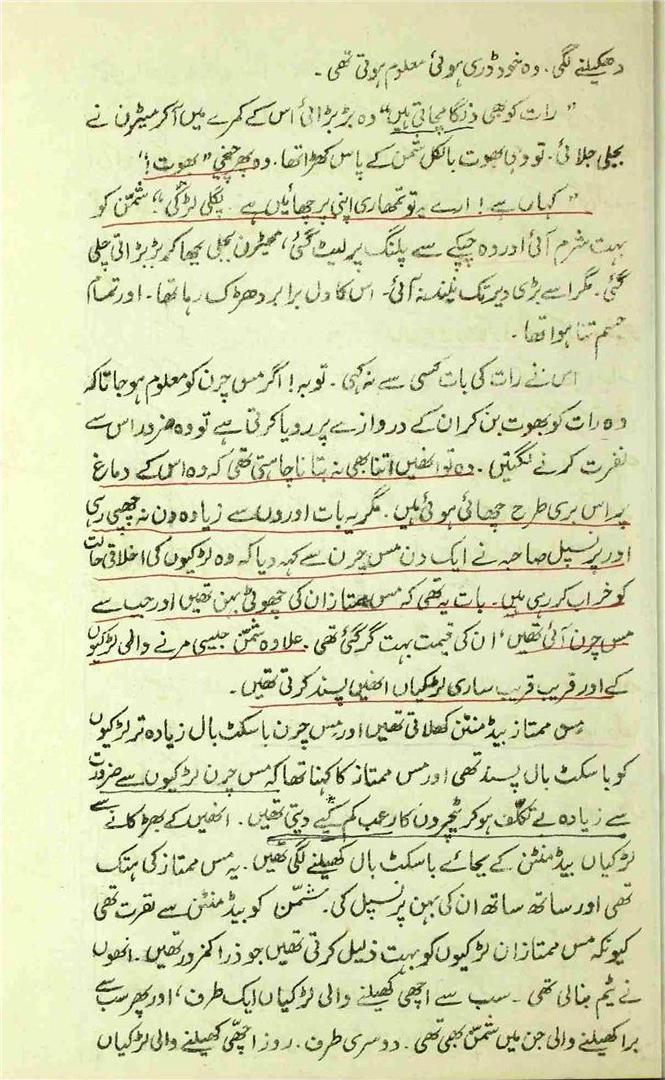 دھکیلنے لگی. وہ خود ڈری ہوئی معلوم ہوتی تھی۔
"رات کو بھی دنگا مچاتی ہیں" وہ بڑبڑائی اس کے کمرے میں آکر میٹرن نے
بجلی جلائی. تو وہی بھوت بالکل شمن کے پاس کھڑا تھا. وہ پھر چیخی "بھوت!"
"کہاں ہے! ارے یہ تو تمھاری اپنی پرچھائیں ہے. پگلی لڑکی"، شمن کو
بہت شرم آئی اور وہ چپکے سے پلنگ پر لیٹ گئی، میٹرن بجلی بجھا کر بڑبڑاتی چلی
گئی. مگر اسے بڑی دیر تک نیند نہ آئی۔ اس کا دل برابر دھڑک رہا تھا۔ اور تمام
جسم تنا ہوا تھا.
اس نے رات کی بات کسی سے نہ کہی. توبہ! اگر مس چرن کو معلوم ہو جاتا کہ
وہ رات کو بھوت بن کر ان کے دروازے پر رویا کرتی ہے تو وہ ضرور اس سے
نفرت کرنے لگتیں. وہ تو انھیں اتنا بھی نہ بتانا چاہتی تھی کہ وہ اس کے دماغ
پر اس بری طرح چھائی ہوئی ہیں. مگر یہ بات اوروں سے زیادہ دن نہ چھپی رہی
اور پرنسپل صاحبہ نے ایک دن مس چرن سے کہہ دیا کہ وہ لڑکیوں کی اخلاقی حالت
کو خراب کر رہی ہیں۔ بات یہ تھی کہ مس ممتاز ان کی چھوٹی بہن تھیں اور جب سے
مس چرن آئی تھیں، ان کی قیمت بہت گر گئی تھی. علاوہ شمن جیسی مرنے والی لڑکیوں
کے اور قریب قریب ساری لڑکیاں انھیں پسند کرتی تھیں۔
مس ممتاز بیڈمنٹن کھلاتی تھیں اور مس چرن باسکٹ بال زیادہ تر لڑکیوں
کو باسکٹ بال پسند تھی اور مس ممتاز کا کہنا تھا کہ مس چرن لڑکیوں سے ضرورت
سے زیادہ بے تکلف ہو کر ٹیچروں کا رعب کم کیے دیتی تھیں. انھیں کے بھڑکانے سے
لڑکیاں بیڈمنٹن کے بجائے باسکٹ بال کھیلنے لگی تھیں. یہ مس ممتاز کی ہتک
تھی اور ساتھ ساتھ ان کی بہن پرنسپل کی۔ شمن کو بیڈمنٹن سے نفرت تھی
کیونکہ مس ممتاز ان لڑکیوں کو بہت ذلیل کرتی تھیں جو ذرا کمزور تھیں. انھوں
نے ٹیم بنالی تھی۔ سب سے اچھی کھیلنے والی لڑکیاں ایک طرف، اور پھر سب سے
برا کھیلنے والی جن میں شمن بھی تھی. دوسری طرف. روز اچھی کھیلنے والی لڑکیاں